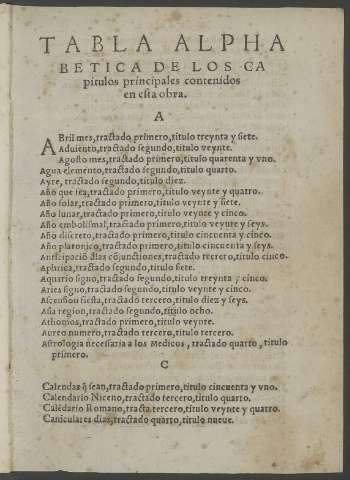 TABLA ALPHA
BETICA DE LOS CA
pitulos principales contenidos
en esta obra.
A
ABril mes, tractado primero, titulo treynta y siete.
Aduiento, tractado segundo, titulo veynte.
Agosto mes, tractado primero, titulo quarenta y vno.
Agua elemento, tractado segundo, titulo quarto.
Ayre, tractado segundo, titulo diez.
Año que sea, tractado primero, titulo veynte y quatro.
Año solar, tractado primero, titulo veynte y siete.
Año lunar, tractado primero, titulo veynte y cinco.
Año embolismal, tractado primero, titulo veynte y seys.
Año discreto, tractado primero, titulo cincuenta y cinco.
Año platonico, tractado primero, titulo cincuenta y seys.
Anticipació dlas cójunctiones, tractado tercero, titulo cinco.
Aphrica, tractado segundo, titulo siete.
Aquario signo, tractado segundo, titulo treynta y cinco.
Aries signo, tractado segundo, titulo veynte y cinco.
Ascension fiesta, tractado tercero, titulo diez y seys.
Asia region, tractado segundo, titulo ocho.
Athomos, tractado primero, titulo veynte.
Aureo numero, tractado tercero, titulo tercero.
Astrologia necessaria a los Medicos, tractado quarto, titulo
primero.
C
Calendas q̃ sean, tractado primero, titulo cincuenta y vno.
Calendario Niceno, tractado tercero, titulo quarto.
Calẽdario Romano, tracta.tercero, titulo veynte y quatro.
Caniculares dias, tractado quarto, titulo nueue.